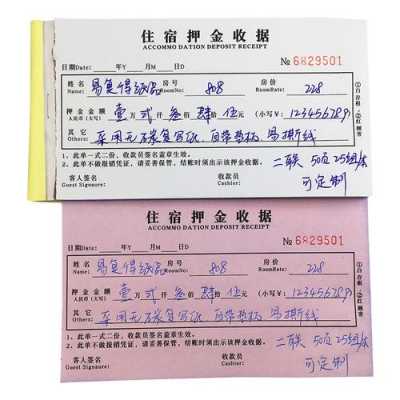 住宿押金收据
ACCOMMO DATION DEPOSIT RECEIPT
№ 6829501
日期Date: 年Y 月M 日D
姓名 Name: 易复得纸品 房号 808 房价 RoomRate: 228
押金金额 人民币(大写) 壹万贰仟叁佰肆拾伍元 (小写¥): 123456789
其它 Others: 采用无碳复写纸,自带垫板 易撕线
1、此单一式二份,收款员签名盖章生效。
2、此单不做报销凭证,请妥善保管,结账时须出示该押金收据。
客人签名 Guest Signsure: 收款员 Cashier:
二联 50页 25组/本
可定制
①白存根 ②红顾客
住宿押金收据
ACCOMMO DATION DEPOSIT RECEIPT
№ 6829501
日期Date: 年Y 月M 日D
姓名 Name: 易复得纸品 房号 808 房价 RoomRate: 228
押金金额 人民币(大写) 壹万贰仟叁佰肆拾伍元 (小写¥): 123456789
其它 Others: 采用无碳复写纸,自带垫板 易撕线
1、此单一式二份,收款员签名盖章生效。
2、此单不做报销凭证,请妥善保管,结账时须出示该押金收据。
客人签名 Guest Signsure: 收款员 Cashier:
二联 50页 25组/本
可定制
①白存根 ②红顾客